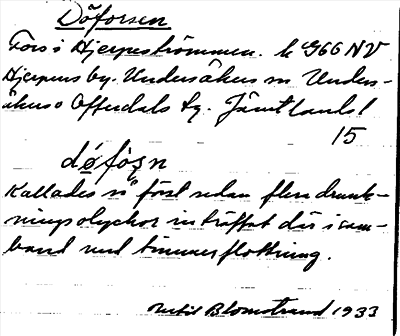 Döforsen
Fors i Hjerpeströmmen. k 966 NV
Hjerpens by. Undersåkers sn Unders-
åkers o Offerdals tg. Jämtlands l
15
døfòsn
Kallades så först sedan flera drunk-
ningsolyckor inträffat där i sam-
band med timmerflottning.
Bertil Blomstrand 1933